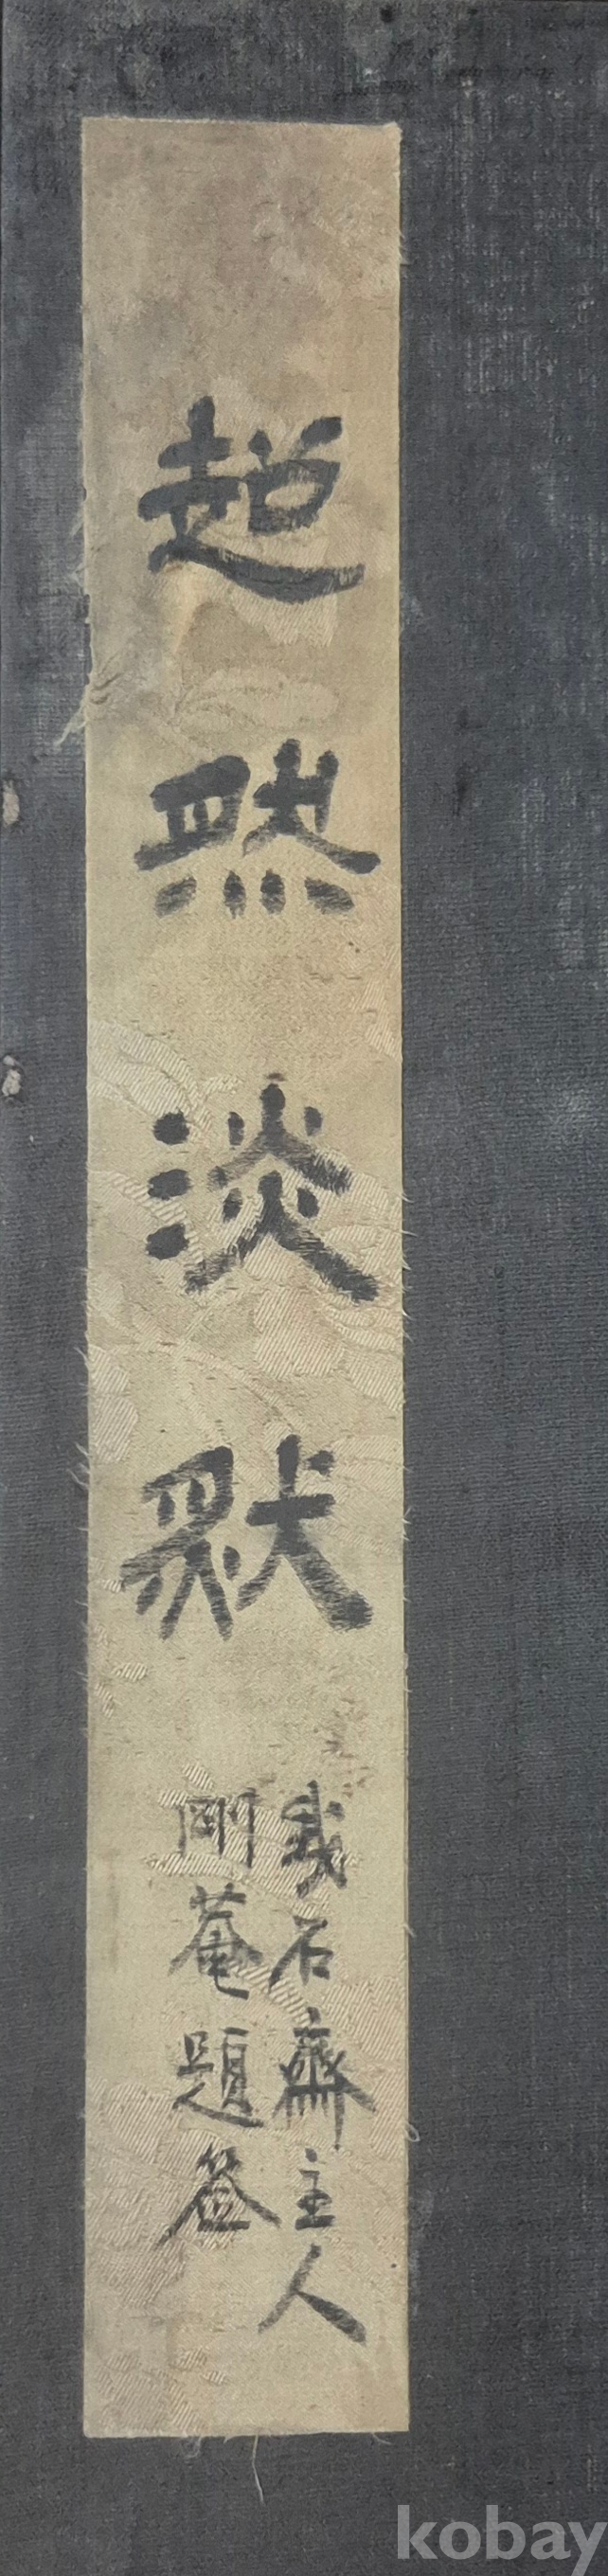 超然淡默
我石齋主人
剛菴題签
kobay